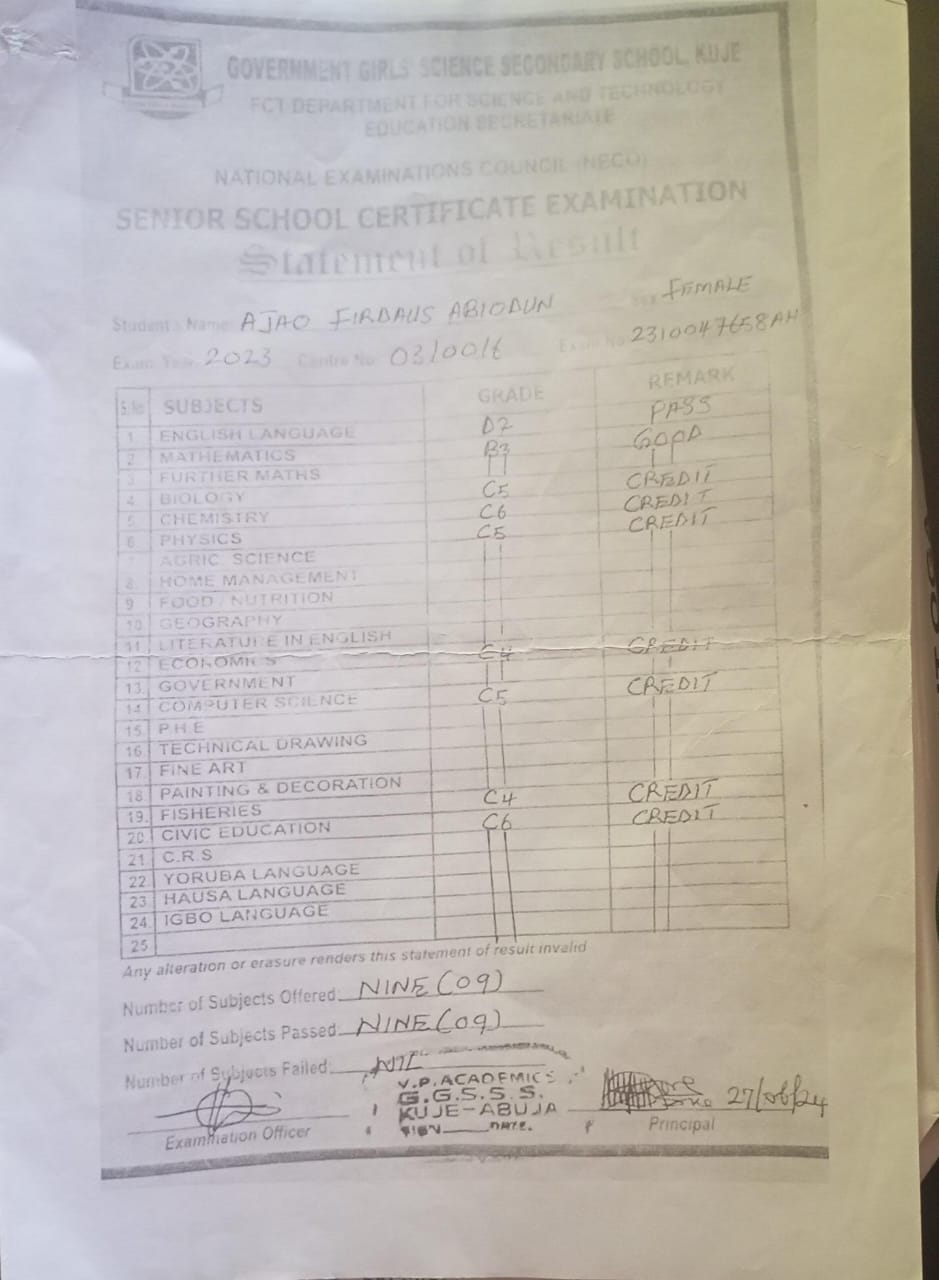 GOVERNMENT GIRLS SCIENCE SECONDARY SCHOOL, KUJE
FCT DEPARTMENT FOR SCIENCE AND TECHNOLOGY
EDUCATION SECRETARIATE
NATIONAL EXAMINATIONS COUNCIL (NECO)
SENIOR SCHOOL CERTIFICATE EXAMINATION
Statement of Result
Student's Name: AJAO FIRDAUS ABIODUN Sex FEMALE
Exam Year 2023 Centre No 0310016 Exam No 2310047658AH
S.No SUBJECTS GRADE REMARK
1 ENGLISH LANGUAGE D7 PASS
2 MATHEMATICS B3 GOOD
3 FURTHER MATHS
4 BIOLOGY C5 CREDIT
5 CHEMISTRY C6 CREDIT
6 PHYSICS C5 CREDIT
AGRIC. SCIENCE
8 HOME MANAGEMENT
9 FOOD / NUTRITION
10 GEOGRAPHY
11 LITERATURE IN ENGLISH
12 ECONOMICS C4 CREDIT
13. GOVERNMENT
14 COMPUTER SCIENCE C5 CREDIT
15 P.H.E
16 TECHNICAL DRAWING
17 FINE ART
18 PAINTING & DECORATION
19. FISHERIES C4 CREDIT
20 CIVIC EDUCATION C6 CREDIT
21 C.R.S
22 YORUBA LANGUAGE
23 HAUSA LANGUAGE
24. IGBO LANGUAGE
25
Any alteration or erasure renders this statement of result invalid
Number of Subjects Offered: NINE (09)
Number of Subjects Passed: NINE (09)
Number of Subjects Failed: NIL
V.P. ACADEMICS
G.G.S.S.S.
KUJE-ABUJA
SIGN DATE.
27/06/24
Examination Officer
Principal